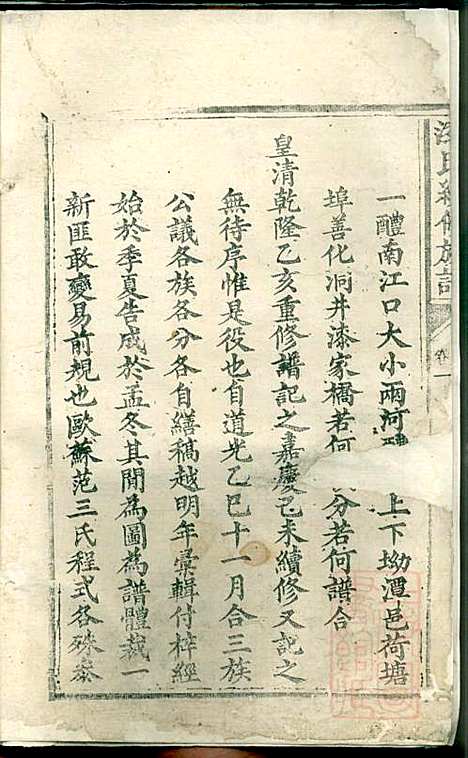 氏續修族譜
卷一
一醴南江口大小兩河 上下坳潭邑荷塘
埠善化洞井漆家橋若何 分若何譜合
皇清乾隆乙亥重修譜記之嘉慶己未續修又記之
無待序惟是役也自道光乙巳十一月合三族
公議各族各分各自繕稿越明年彙輯付梓經
始於季夏告成於孟冬其間為圖為譜體裁一
新匪敢變易前規也歐蘇范三氏程式各殊泰